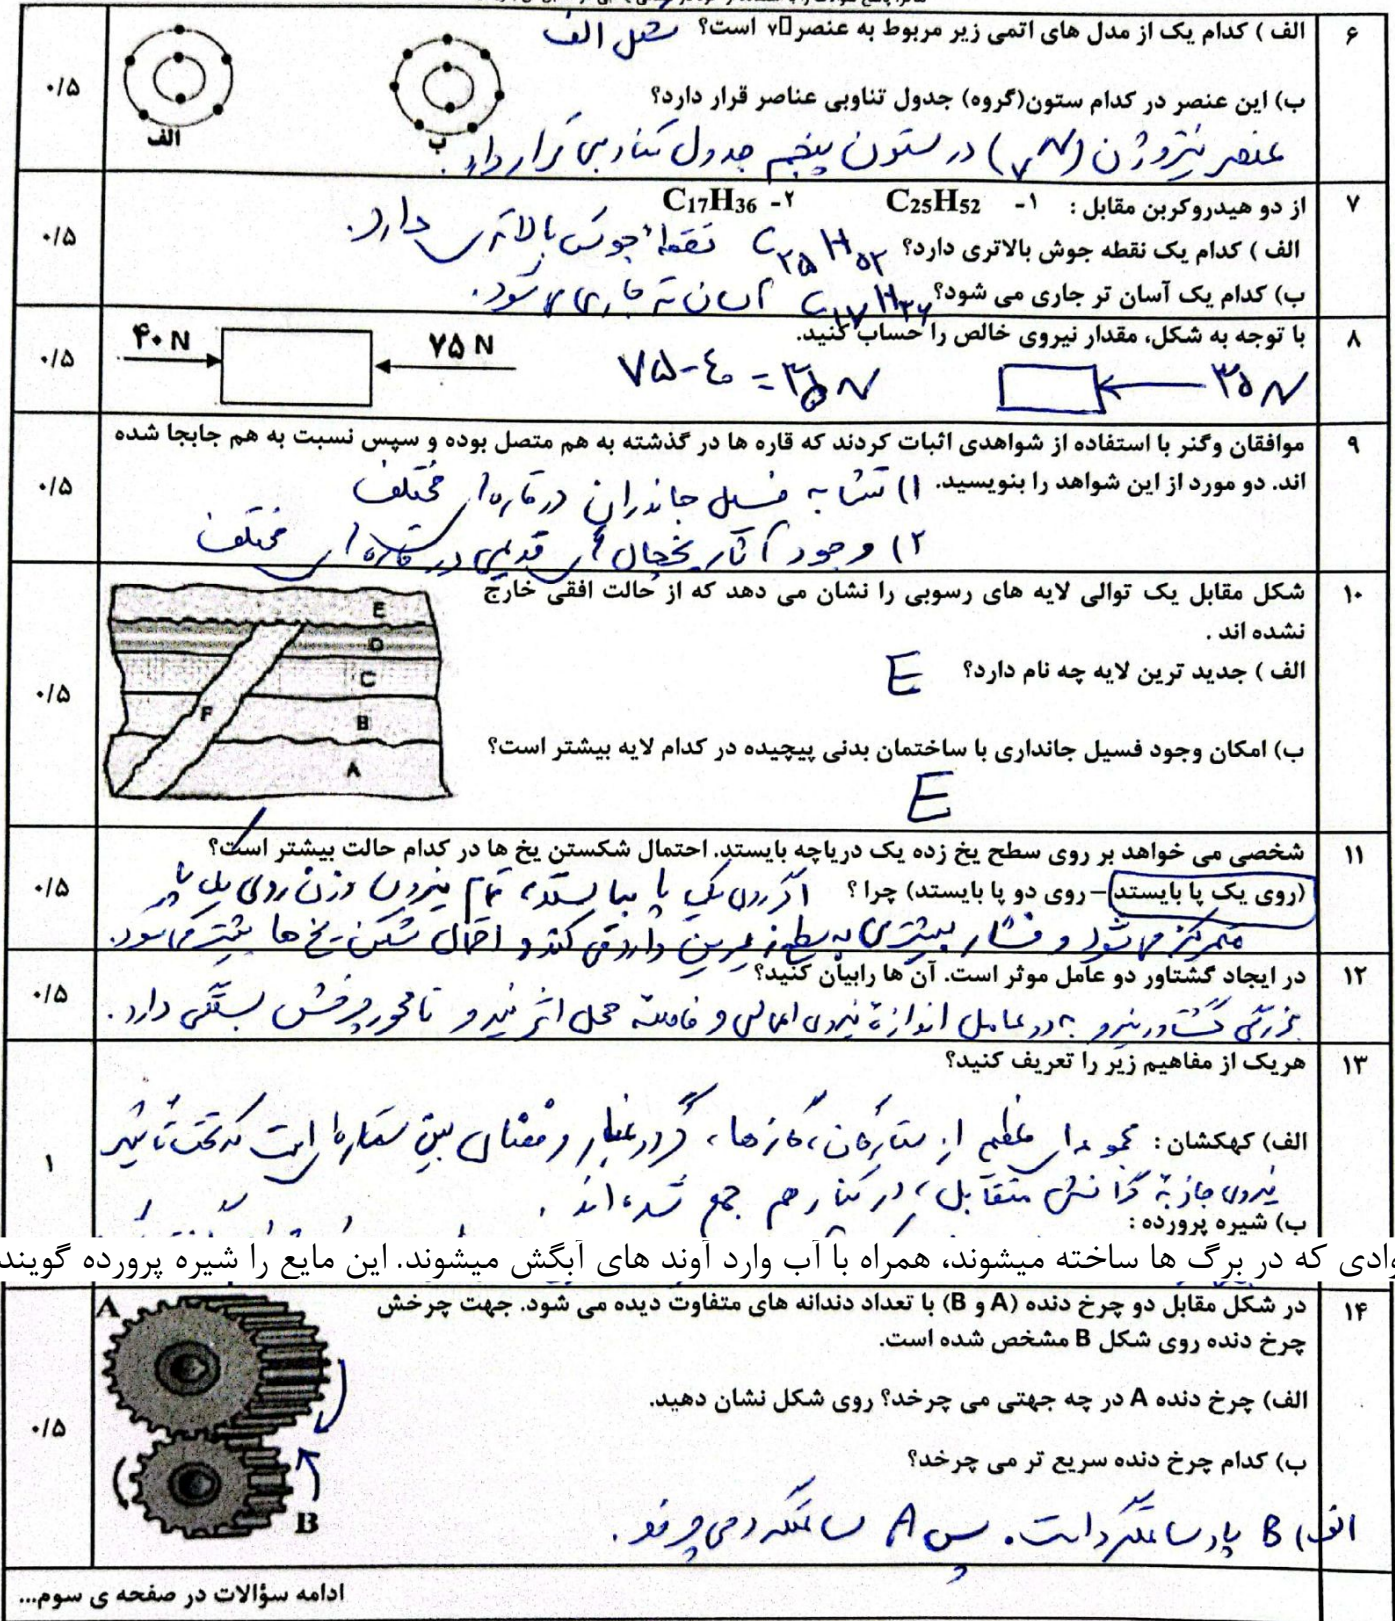 ۶
الف ) کدام یک از مدل های اتمی زیر مربوط به عنصر ۷ است؟ شکل الف
ب) این عنصر در کدام ستون(گروه) جدول تناوبی عناصر قرار دارد؟
عنصر نیتروژن (۷N) در ستون پنجم جدول تناوبی قرار دارد.
الف
ب
۰/۵
۷
از دو هیدروکربن مقابل : ۱- C25H52 ۲- C17H36
الف ) کدام یک نقطه جوش بالاتری دارد؟ C۲۵H۵۲ نقطه جوش بالاتری دارد.
ب) کدام یک آسان تر جاری می شود؟ C۱۷H۳۶ آسان تر جاری می شود.
۰/۵
۸
با توجه به شکل، مقدار نیروی خالص را حساب کنید.
۴۰ N
۷۵ N
۷۵-۴۰ = ۳۵ N
۳۵ N
۰/۵
۹
موافقان وگنر با استفاده از شواهدی اثبات کردند که قاره ها در گذشته به هم متصل بوده و سپس نسبت به هم جابجا شده
اند. دو مورد از این شواهد را بنویسید. ۱) تشابه فسیل جانداران در قاره های مختلف
۲) وجود آثار یخچال های قدیمی در قاره های مختلف
۰/۵
۱۰
شکل مقابل یک توالی لایه های رسوبی را نشان می دهد که از حالت افقی خارج
نشده اند .
الف ) جدید ترین لایه چه نام دارد؟ E
ب) امکان وجود فسیل جانداری با ساختمان بدنی پیچیده در کدام لایه بیشتر است؟
E
E
D
C
F
B
A
۰/۵
۱۱
شخصی می خواهد بر روی سطح یخ زده یک دریاچه بایستد. احتمال شکستن یخ ها در کدام حالت بیشتر است؟
(روی یک پا بایستد – روی دو پا بایستد) چرا ؟ اگر روی یک پا بایستد، تمام نیروی وزن روی یک پا
متمرکز می شود و فشار بیشتری به سطح زیرین وارد می کند و احتمال شکستن یخ ها بیشتر می شود.
۰/۵
۱۲
در ایجاد گشتاور دو عامل موثر است. آن ها رابیان کنید؟
بزرگی گشتاور نیرو به دو عامل اندازۀ نیروی اعمالی و فاصله محل اثر نیرو تا محور چرخش بستگی دارد.
۰/۵
۱۳
هریک از مفاهیم زیر را تعریف کنید؟
الف) کهکشان : مجموعه ای عظیم از ستارگان، گازها، گرد و غبار و فضای بین ستاره ای است که تحت تاثیر
نیروی جاذبه گرانش متقابل، در کنار هم جمع شده اند.
ب) شیره پرورده :
وادی که در برگ ها ساخته میشوند، همراه با آب وارد آوند های آبگش میشوند. این مایع را شیره پرورده گویند
۱
۱۴
در شکل مقابل دو چرخ دنده (A و B) با تعداد دندانه های متفاوت دیده می شود. جهت چرخش
چرخ دنده روی شکل B مشخص شده است.
الف) چرخ دنده A در چه جهتی می چرخد؟ روی شکل نشان دهید.
ب) کدام چرخ دنده سریع تر می چرخد؟
الف) B پادساعتگرد است. پس A ساعتگرد می چرخد.
A
B
۰/۵
ادامه سؤالات در صفحه ی سوم...